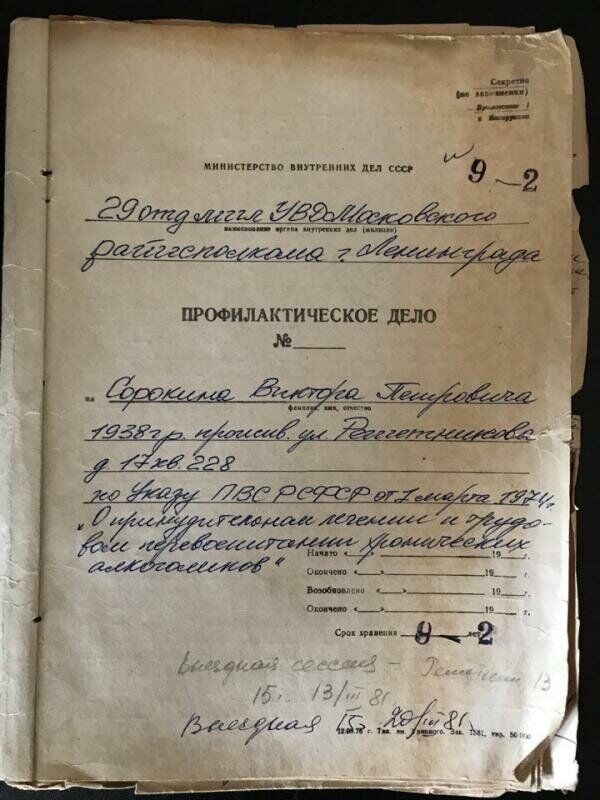 Секретно
(по заполнении)
Приложение 1
к Инструкции
МИНИСТЕРСТВО ВНУТРЕННИХ ДЕЛ СССР
9-2
29 отд мил УВД Московского
наименование органа внутренних дел (милиции)
райисполкома г. Ленинграда
ПРОФИЛАКТИЧЕСКОЕ ДЕЛО
№
на Сорокина Виктора Петровича
фамилия, имя, отчество
1938 г.р. прожив. ул Решетникова
д. 17 кв. 228
по Указу ПВС РСФСР от 1 марта 1974 г.
„О принудительном лечении и трудо-
вом перевоспитании хронических
алкоголиков"
Начато « » 19 г.
Окончено « » 19 г.
Возобновлено « » 19 г.
Окончено « » 19 г.
Срок хранения 9-2 лет
Выездная сессия – 13
15. 13/III 81
Выездная 15. 20/III 81.
12.08.76 г. Тип. им. Зак. 1581, тир. 50 000